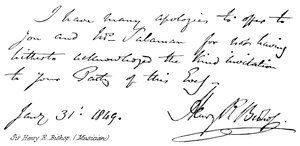 I have many apologies to offer to
you and Mrs. Salaman for not having
hitherto acknowledged the kind invitation
to your Party of this Eveg.
Jany 31st 1849.
Henry R. Bishop
Sir Henry R. Bishop. (Musician)